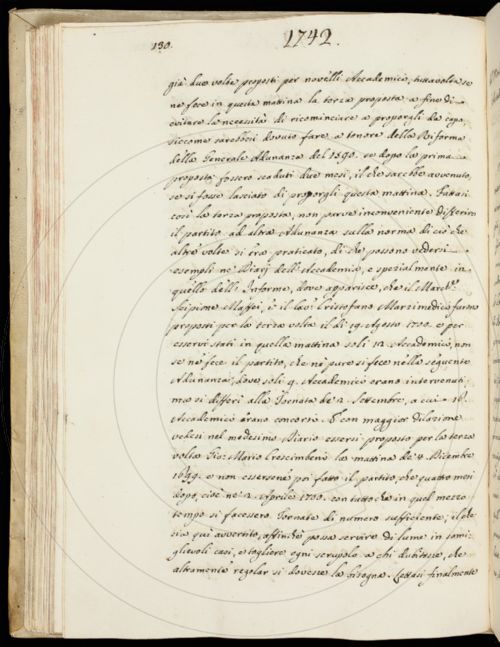 130.
1742.
già due volte proposti per novelli Accademici, tuttavolta se
ne fece in questa mattina la terza proposta a fine di
evitare la necessità di ricominciare a proporgli da capo,
siccome sarebbesi dovuto fare a tenore della Riforma
della Generale Adunanza del 1590. se dopo la prima
proposta fossero scaduti due mesi, il che sarebbe avvenuto,
se si fosse lasciato di proporgli questa mattina. Fattasi
così la terza proposta, non parve inconveniente differire
il partito ad altra Adunanza sulla norma di ciò che
altre volte si era praticato, di che possono vedersi
esempli ne' Diarj dell'Accademia, e spezialmente in
quello dell'Informe, dove apparisce, che il March.
Scipione Maffei, e il Cav. Cristofano Marzimedici furono
proposti per la terza volta il dì 19. Agosto 1700. e per
esservi stati in quella mattina soli 12. Accademici, non
se ne fece il partito, che nè pure si fece nella seguente
Adunanza, dove soli 9. Accademici erano intervenuti,
ma si differì alla Tornata de' 2. Settembre, a cui 16.
Accademici erano concorsi. E con maggior dilazione
vedesi nel medesimo Diario essersi proposto per la terza
volta Gio: Mario Crescimbeni la mattina de' 8. Dicembre
1699. e non essersene poi fatto il partito, che quattro mesi
dopo, cioè ne' 2. Aprile 1700. con tutto che in quel mezzo
tempo si facessero Tornate di numero sufficiente; il che
sia qui avvertito, affinchè possa servire di lume in somi-
glievoli casi, e togliere ogni scrupolo a chi dubitasse, che
altramente regolar si dovesse la bisogna. Lettasi finalmente